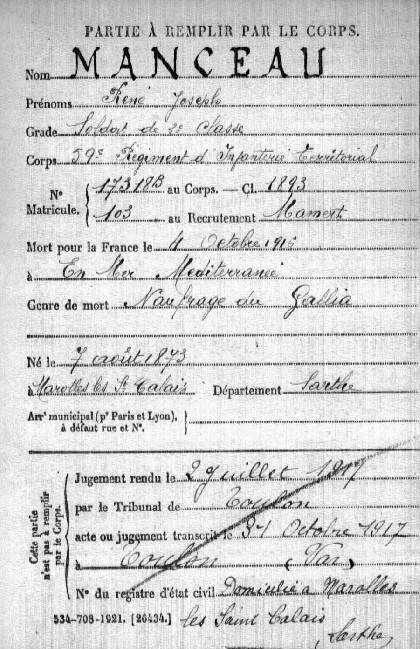 PARTIE À REMPLIR PAR LE CORPS.
Nom MANCEAU
Prénoms René Joseph
Grade Soldat de 2e Classe
Corps 59e Régiment d'Infanterie Territorial
Nº Matricule. { 17318B au Corps. — Cl. 1893
103 au Recrutement Mamers
Mort pour la France le 4 Octobre 1916
à En Mer Méditerranée
Genre de mort Naufrage du Gallia
Né le 7 août 1873
à Marolles les St Calais Département Sarthe
Arrt municipal (pr Paris et Lyon),
à défaut rue et Nº.
Cette partie
n'est pas à remplir
par le Corps.
Jugement rendu le 2 Juillet 1917
par le Tribunal de Toulon
acte ou jugement transcrit le 31 Octobre 1917
à Toulon (Var)
Nº du registre d'état civil Domicilié à Marolles
les Saint Calais
Sarthe
534-708-1921. [26434.]